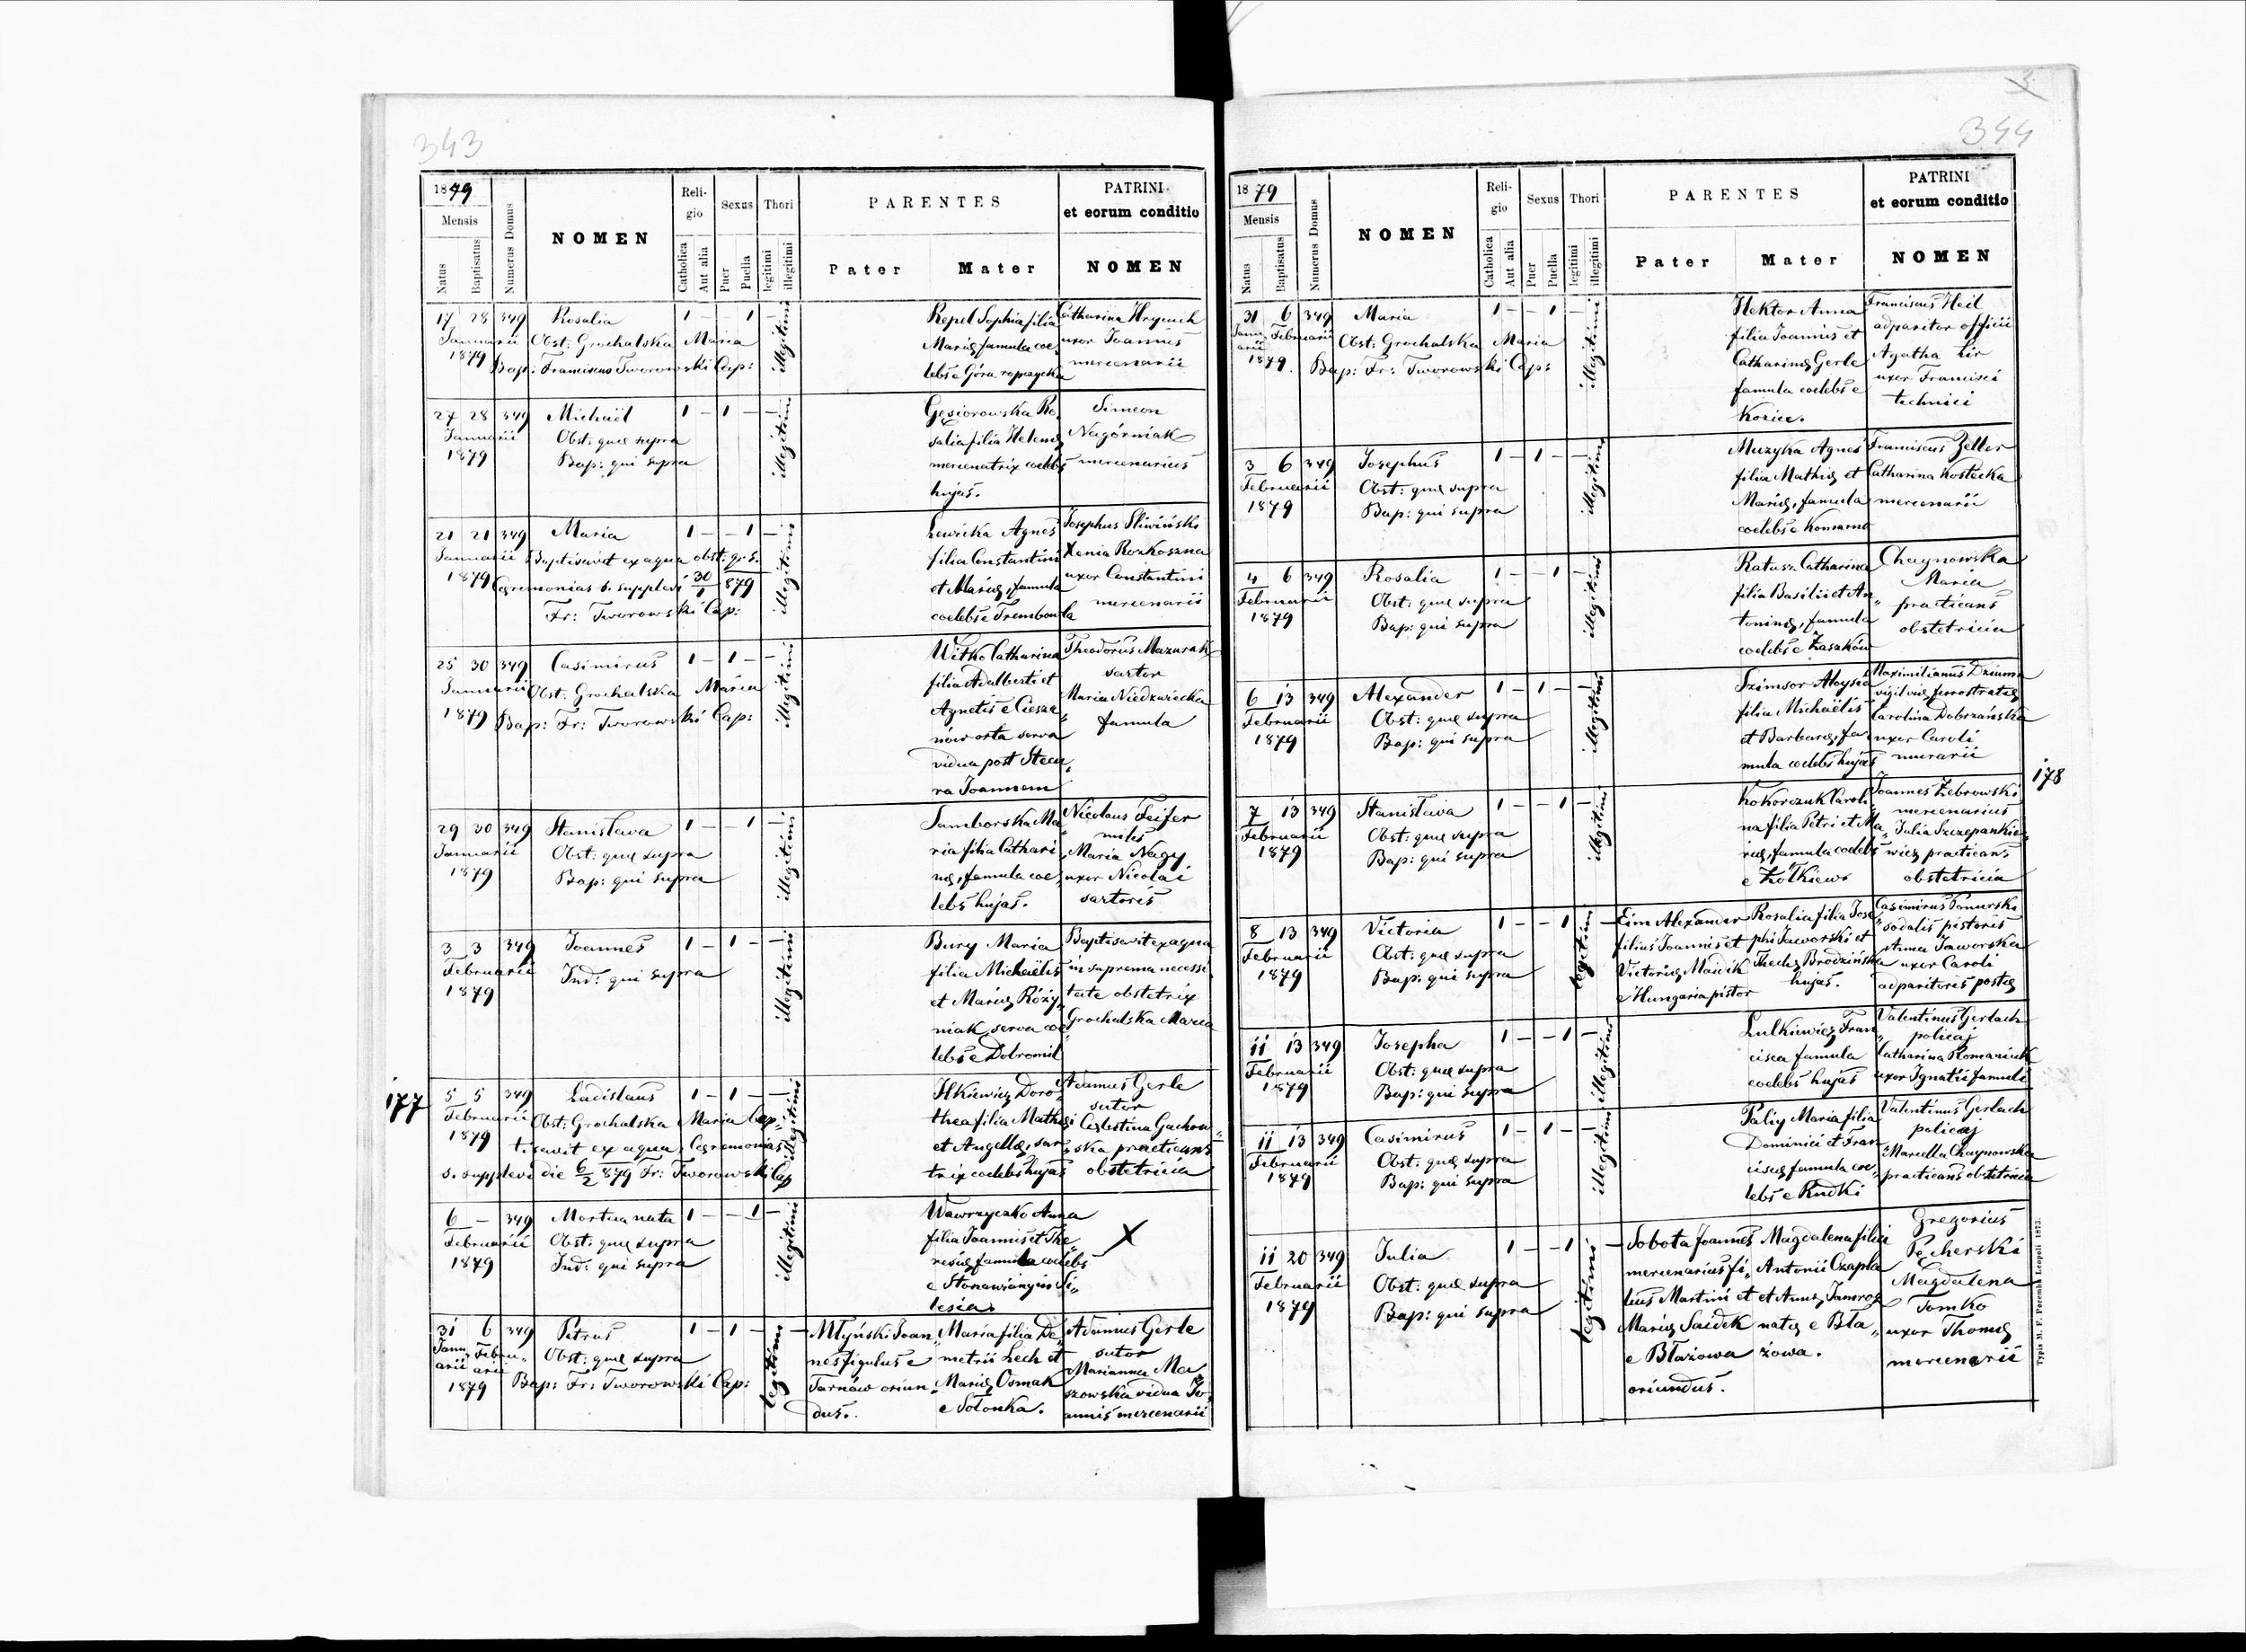 343
1879
Mensis
Natus
Baptisatus
Numerus Domus
NOMEN
Reli-
gio
Catholica
Aut alia
Sexus
Puer
Puella
Thori
legitimi
illegitimi
PARENTES
Pater
Mater
PATRINI
et eorum conditio
NOMEN
17 28 349 Rosalia 1 – 1 – illegitimi Repel Sophia filia Catharina Hrynuh
Januarii Obst: Grochalska Maria Mariæ, famula coe„ uxor Joannis
1879 Bap: Franciscus Tworowski Cap: lebs e Góra ropczycka mercenarii
27 28 349 Michaël 1 – 1 – – illegitimi Gęsiorowska Ro„ Simeon
Januarii Obst: quæ supra salia filia Helenæ Nagórniak
1879 Bap: qui supra mercenatrix coelebs mercenarius
hujas.
21 21 349 Maria 1 – – 1 – illegitimi Lewicka Agnes Josephus Sliwiński
Januarii Baptisavit ex aqua obst: q. s. filia Constantini Xenia Rozkoszna
1879 Ceremonias s. supplevi 30/1 879 et Mariæ, famula uxor Constantini
Fr: Tworowski Cap: coelebs e Trembowla mercenarii
25 30 349 Casimirus 1 – 1 – – illegitimi Witko Catharina Theodorus Mazurak
Januarii Obst: Grochalska Maria filia Adalberti et sartor
1879 Bap: Fr: Tworowski Cap: Agnetis e Ciesza„ Maria Niedzwiecka
nów orta serva famula
vidua post Stecu„
ra Joannem
29 30 349 Stanisława 1 – – 1 – illegitimi Samborska Ma„ Nicolaus Feifer
Januarii Obst: quæ supra ria filia Cathari„ miles
1879 Bap: qui supra næ, famula coe„ Maria Nagy
lebs hujas. uxor Nicolai
sartoris
3 3 349 Joannes 1 – 1 – – illegitimi Bury Maria Baptisavit ex aqua
Februarii Ind: qui supra filia Michaëlis in suprema necessi
1879 et Mariæ Róży„ tate obstetrix
niak, serva coe„ Grochalska Maria
lebs e Dobromil
177
5 5 349 Ladislaus 1 – 1 – – illegitimi Ilkiewicz Doro„ Adamus Gerle
Februarii Obst: Grochalska Maria bap„ thea filia Mathæi sutor
1879 tisavit ex aqua, Ceremonias et Angellæ, sar„ Cælestina Gachow„
s. supplevi die 6/2 879 Fr: Tworowski Cap trix coelebs hujas ska practicans
obstetricia
6 – 349 Mortua nata 1 – – 1 – illegitimi Wawrzyczko Anna X
Februarii Obst: quæ supra filia Joannis et The„
1879 Ind: qui supra resiæ famula coelebs
lesia.
31 6 349 Petrus 1 – 1 – legitimi – Młyński Joan„ Maria filia De„ Adamus Gerle
Janu„ Febru„ Obst: quæ supra nes figulus e metrii Lech et sutor
arii arii Bap: Fr: Tworowski Cap: Tarnów oriun„ Mariæ Osmak Marianna Ma„
1879 dus. e Sołonka. szowska vidua Jo„
annis mercenarii
344
1879
Mensis
Natus
Baptisatus
Numerus Domus
NOMEN
Reli-
gio
Catholica
Aut alia
Sexus
Puer
Puella
Thori
legitimi
illegitimi
PARENTES
Pater
Mater
PATRINI
et eorum conditio
NOMEN
31 6 349 Maria 1 – – 1 – illegitimi Hektor Anna Franciscus Heil
Janu„ Februarii Obst: Grochalska Maria filia Joannis et adparitor officii
arii Bap: Fr: Tworowski Cap: Catharinæ Gerle Agatha Lir
1879. famula coelebs e uxor Francisci
Kozice. technici
3 6 349 Josephus 1 – 1 – – illegitimi Muzyka Agnes Franciscus Zeller
Februarii Obst: quæ supra filia Mathiæ et Catharina Kostecka
1879 Bap: qui supra Mariæ, famula mercenarii
coelebs e Komarno
4 6 349 Rosalia 1 – – 1 – illegitimi Ratusz Catharina Chaynowska
Februarii Obst: quæ supra filia Basilii et An„ Maria
1879 Bap: qui supra toninæ, famula practicans
coelebs e Zaszków obstetricia
6 13 349 Alexander 1 – 1 – – illegitimi Szimsor Aloysia Maximilianus Dziuma
Februarii Obst: quæ supra filia Michaëlis vigil viæ ferrostratæ
1879 Bap: qui supra et Barbaræ, fa„ Carolina Dobrzańska
mula coelebs hujas uxor Caroli
murarii
178
7 13 349 Stanisława 1 – – 1 – illegitimi Kokorczuk Caroli„ Joannes Zebrowski
Februarii Obst: quæ supra na filia Petri et Ma„ mercenarius
1879 Bap: qui supra riæ, famula coelebs Julia Szczepankie„
e Żółkiew wicz practicans
obstetricia
8 13 349 Victoria 1 – – 1 legitimi – Eim Alexander Rosalia filia Jose„ Casimirus Ponurski
Februarii Obst: quæ supra filius Joannis et phi Jaworski et sodalis pistoris
1879 Bap: qui supra Victoriæ Maidik Theclæ Brodzińska Anna Jaworska
e Hungaria pistor hujas. uxor Caroli
adparitoris postæ
11 13 349 Josepha 1 – – 1 – illegitimi Lulkiewicz Fran„ Valentinus Gerlach
Februarii Obst: quæ supra cisca famula policaj
1879 Bap: qui supra coelebs hujas Catharina Romaniuk
uxor Ignatii famuli
11 13 349 Casimirus 1 – 1 – – illegitimi Paliy Maria filia Valentinus Gerlach
Februarii Obst: quæ supra Dominici et Fran„ policaj
1879 Bap: qui supra ciscæ, famula coe„ Marcella Chaynowska
lebs e Rudki practicans obstetricia
11 20 349 Julia 1 – – 1 legitimi – Sobota Joannes Magdalena filia Gregorius
Februarii Obst: quæ supra mercenarius fi„ Antonii Czapla Pecherski
1879 Bap: qui supra lius Martini et et Annæ Jamroz Magdalena
Mariæ Saidek natæ e Bła„ Tomko
e Błażowa żowa. uxor Thomæ
oriundus. mercenarii
Typis M. F. Poremba Leopoli 1873.